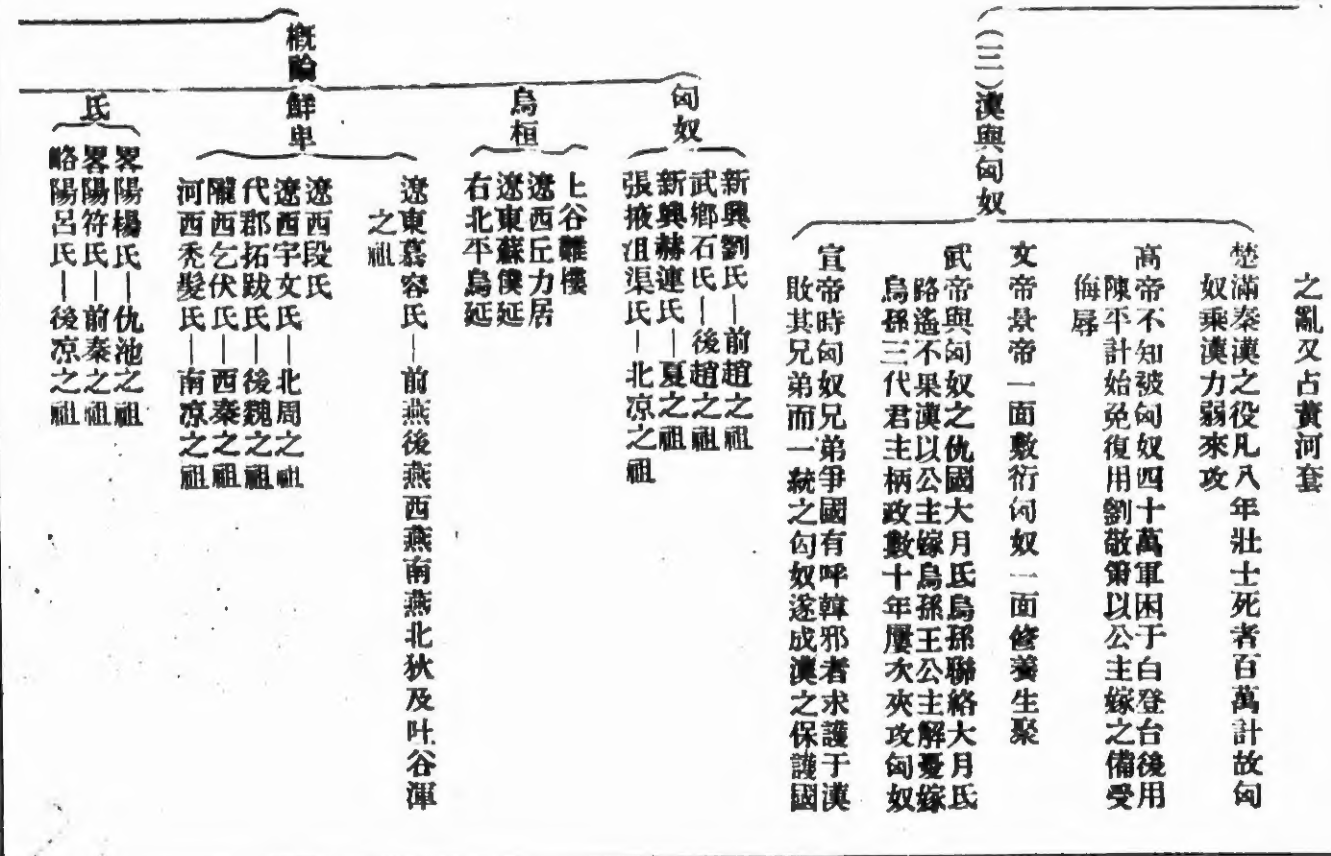 之亂又占黃河套
(三)漢與匈奴
楚滿秦漢之役凡八年壯士死者百萬計故匈
奴乘漢力弱來攻
高帝不知被匈奴四十萬軍困于白登台後用
陳平計始免復用劉敬策以公主嫁之備受
侮辱
文帝景帝一面敷衍匈奴一面修養生聚
武帝與匈奴之仇國大月氏烏孫聯絡大月氏
路遙不果漢以公主嫁烏孫王公主解憂嫁
烏孫三代君主柄政數十年屢次夾攻匈奴
宣帝時匈奴兄弟爭國有呼韓邪者求護于漢
敗其兄弟而一統之匈奴遂成漢之保護國
概論
匈奴
新興劉氏—前趙之祖
武鄉石氏—後趙之祖
新興赫連氏—夏之祖
張掖沮渠氏—北凉之祖
烏桓
上谷難樓
遼西丘力居
遼東蘇僕延
右北平烏延
鮮卑
遼東慕容氏—前燕後燕西燕南燕北狄及吐谷渾
之祖
遼西段氏
遼西宇文氏—北周之祖
代郡拓跋氏—後魏之祖
隴西乞伏氏—西秦之祖
河西禿髮氏—南凉之祖
氐
畧陽楊氏—仇池之祖
畧陽符氏—前秦之祖
略陽呂氏—後凉之祖